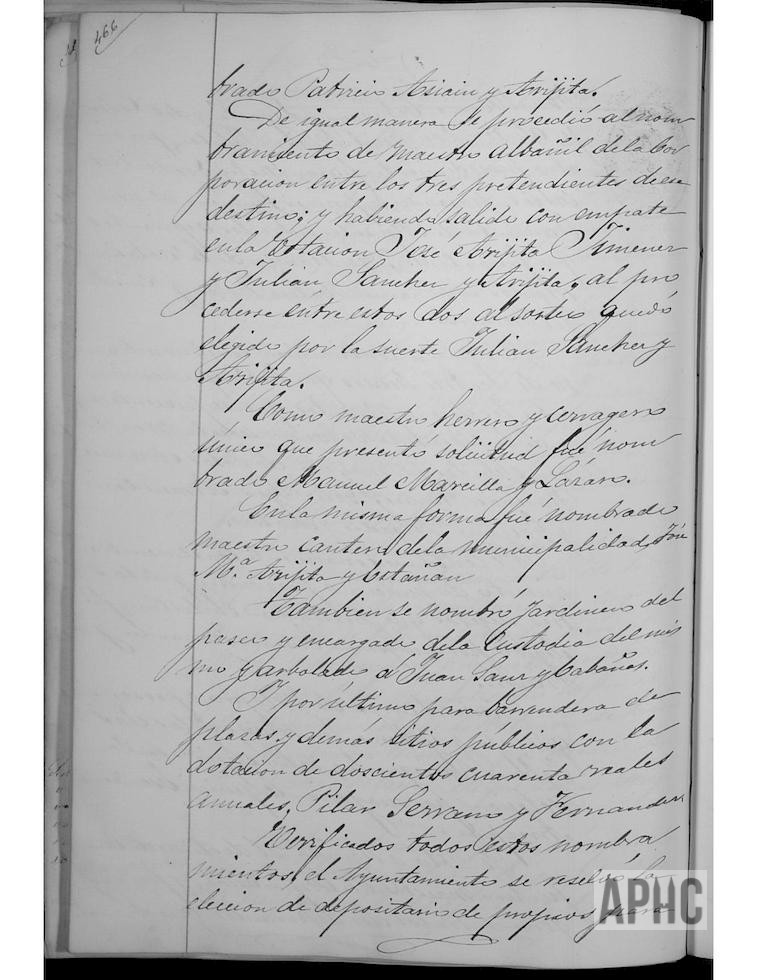 466
brado Patricio Asiain y Arijita.
De igual manera se procedió al nom
bramiento de maestro albañil de la Cor
poracion entre los tres pretendientes de ese
destino; y habiendo salido con empate
en la votacion Jose Arijita Jimenez
y Julian Sanchez y Arijita, al pro
cederse entre estos dos al sorteo quedó
elegido por la suerte Julian Sanchez y
Arijita.
Como maestro herrero y cerragero
único que presentó solicitud fué nom
brado Manuel Marcilla y Lázaro.
En la misma forma fué nombrado
maestro cantero de la municipalidad José
M.ª Arijita y Cotañan
Tambien se nombró jardinero del
paseo y encargado de la custodia del mis
mo y arbolado á Juan Sanz y Cabañas.
Y por último para barrendera de
plazas y demás sitios públicos con la
dotacion de doscientos cuarenta reales
anuales, Pilar Serrano y Fernandez.
Verificados todos estos nombra
mientos, el Ayuntamiento se reselvó la
eleccion de depositario de propios para
APHC